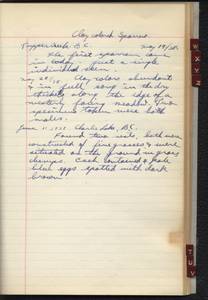 Clay colored Sparrow
May 19/38
The first sparrow came
in today. Just a single
individual seen.
May 20/38 Clay colors abundant
& in full song in the dry
thickets along the edge of a
western facing meadow. Two
specimens taken were both
males.
June 11, 1938 Charlie Lake, B.C.
Found two nests, both were
constructed of fine grasses & were
situated on the ground in grass
clumps. Each contained 4 pale
blue eggs spotted with dark
brown.
W X Y Z
T U V